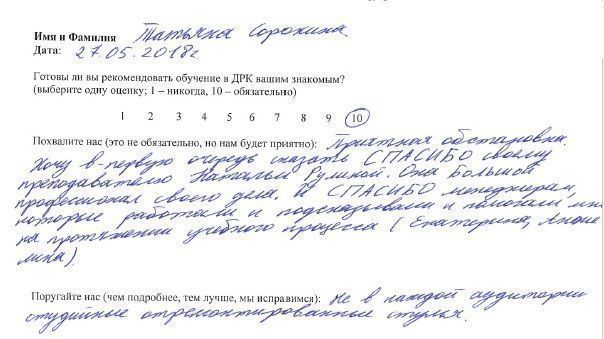 Имя и Фамилия Татьяна Сорокина
Дата: 27.05.2018г.
Готовы ли вы рекомендовать обучение в ДРК вашим знакомым?
(выберите одну оценку; 1 – никогда, 10 – обязательно)
1 2 3 4 5 6 7 8 9 10
Похвалите нас (это не обязательно, но нам будет приятно): Приятная обстановка.
Хочу в-первую очередь сказать СПАСИБО своему
преподавателю Наталье Руминой. Она большой
профессионал своего дела. И СПАСИБО менеджерам,
которые работали и подсказывали и помогали мне
на протяжении учебного процесса (Екатерина, Анже
лика).
Поругайте нас (чем подробнее, тем лучше, мы исправимся): Не в каждой аудитории
студийные отремонтированные стулья.